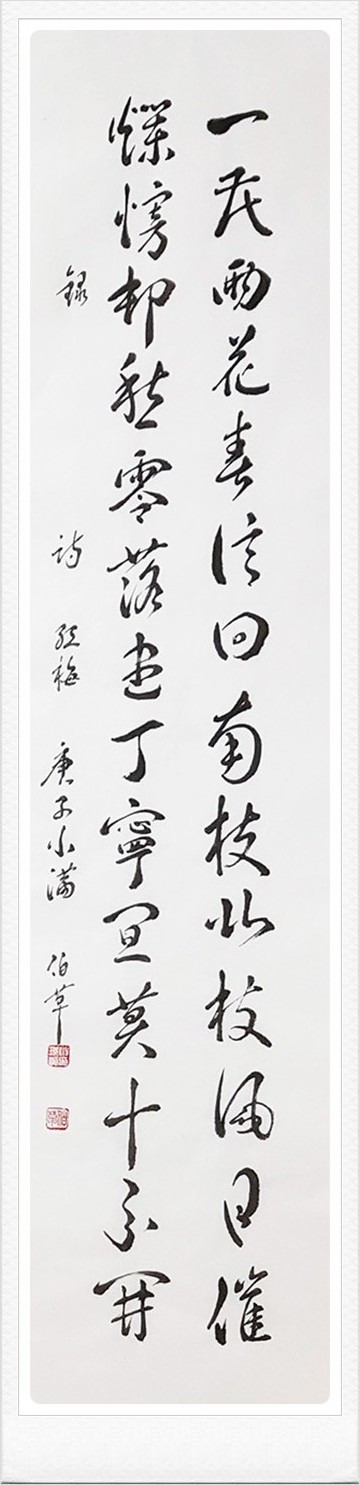 一花兩花春信回南枝北枝風日催
爛慢却愁零落近丁寧且莫十分開
錄 詩 紅梅 庚子小滿 伯草